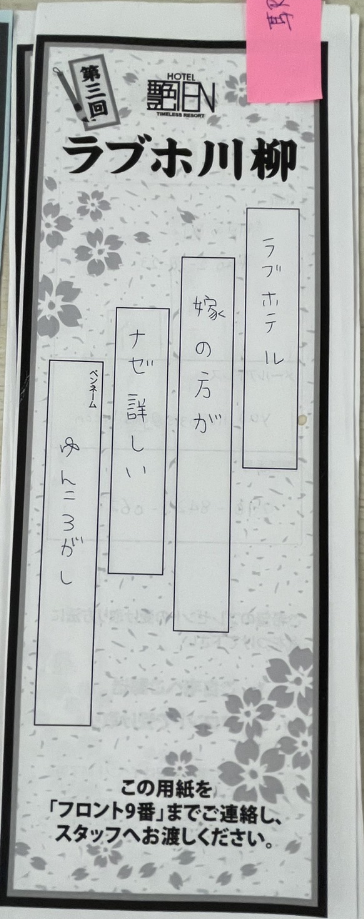 第三回
HOTEL
艶TEN
TIMELESS RESORT
ラブホ川柳
ラブホテル
嫁の方が
ナゼ詳しい
ペンネーム
ゆんころがし
この用紙を
「フロント9番」までご連絡し、
スタッフへお渡しください。